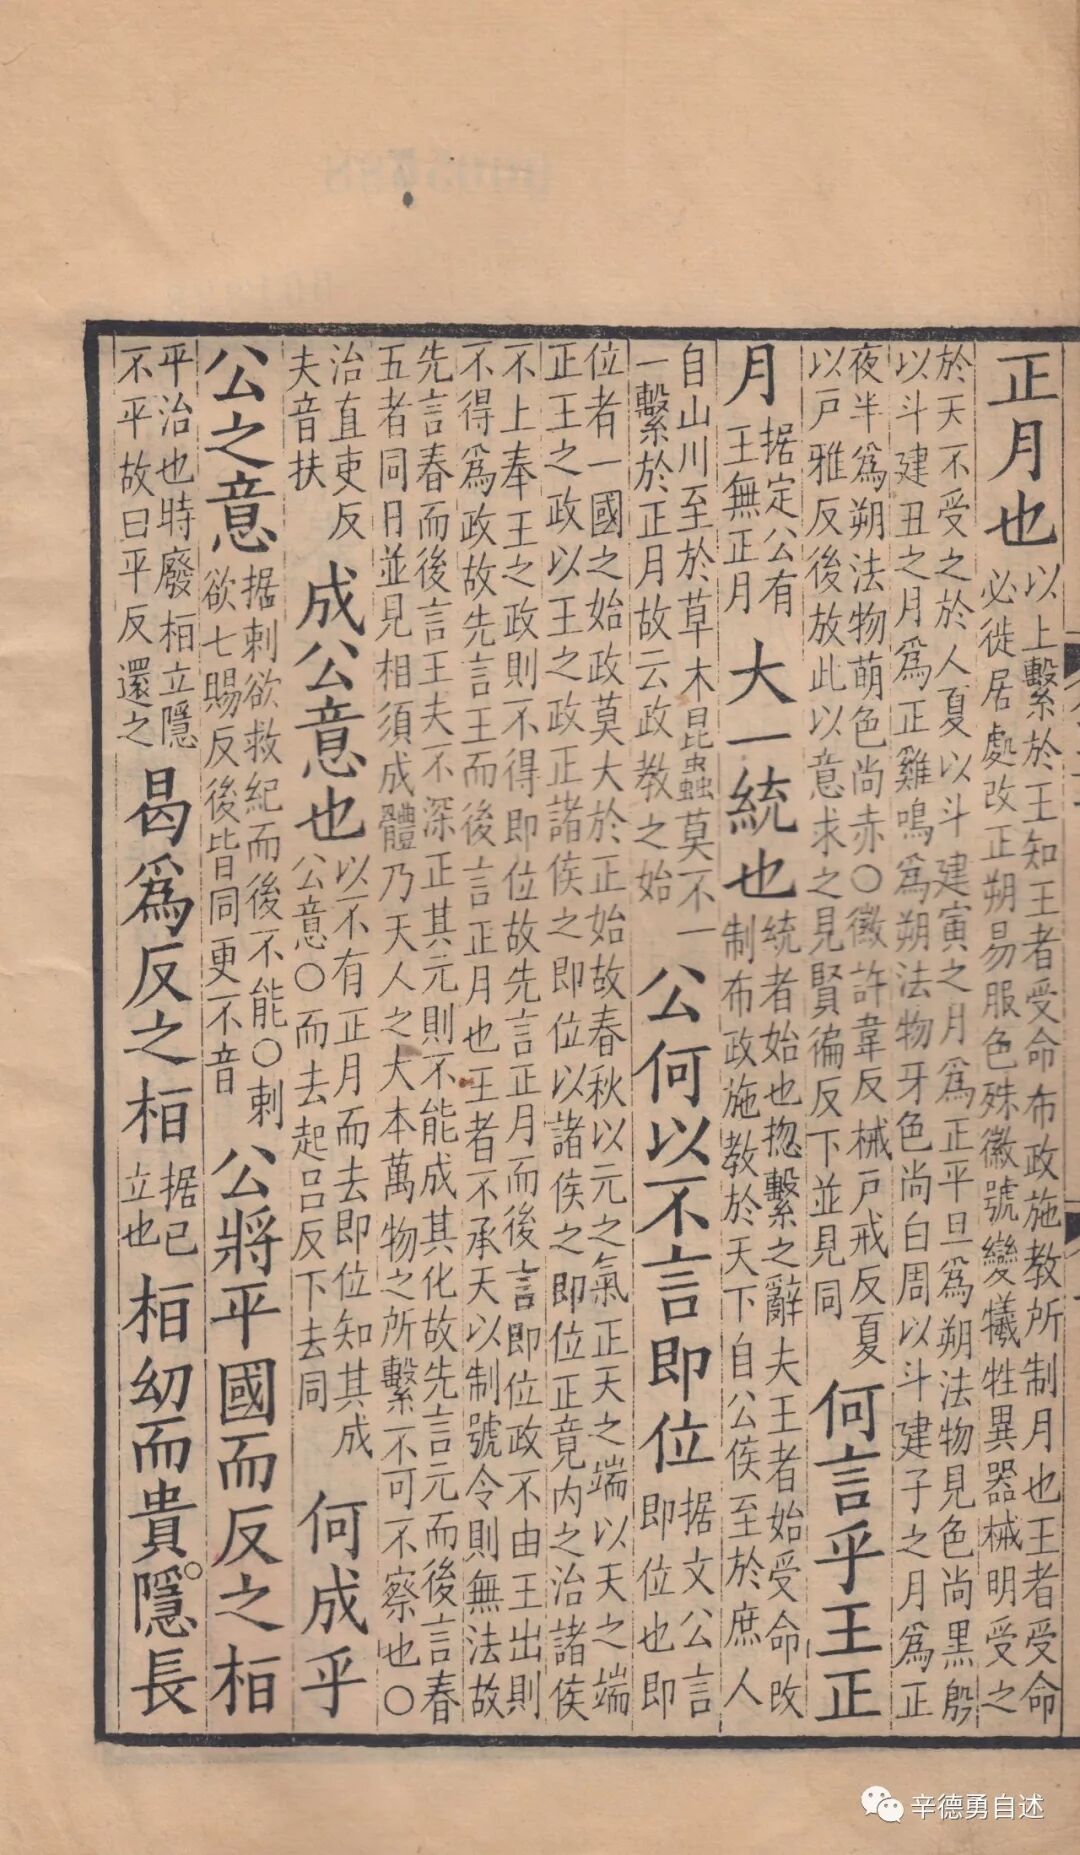 正月也以上繫於王知王者受命布政施教所制月也王者受命
必徙居處改正朔易服色殊徽號變犧牲異器械明受之
於天不受之於人夏以斗建寅之月爲正平旦爲朔法物見色尚黑殷
以斗建丑之月爲正雞鳴爲朔法物牙色尚白周以斗建子之月爲正
夜半爲朔法物萌色尚赤○徽許韋反械戸戒反夏
以戸雅反後放此以意求之見賢徧反下並見同
何言乎王正
月
据定公有
王無正月
大一統也
統者始也揔繫之辭夫王者始受命改
制布政施教於天下自公侯至於庶人
自山川至於草木昆蟲莫不一
一繫於正月故云政教之始
公何以不言即位
据文公言
即位也即
位者一國之始政莫大於正始故春秋以元之氣正天之端以天之端
正王之政以王之政正諸侯之即位以諸侯之即位正竟内之治諸侯
不上奉王之政則不得即位故先言正月而後言即位政不由王出則
不得爲政故先言王而後言正月也王者不承天以制號令則無法故
先言春而後言王夫不深正其元則不能成其化故先言元而後言春
五者同日並見相須成體乃天人之大本萬物之所繫不可不察也○
治直吏反
夫音扶
成公意也
以不有正月而去即位知其成
公意○而去起呂反下去同
何成乎
公之意
据刺欲救紀而後不能○刺
欲七賜反後皆同更不音
公將平國而反之桓
平治也時廢桓立隱
不平故曰平反還之
曷爲反之桓
据已
立也
桓幼而貴。隱長
辛德勇自述